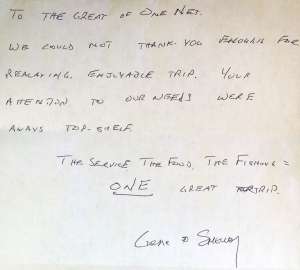 To The Great of One Net.
We could not thank-you enough for
relaxing, enjoyable trip. Your
attention to our needs were
aways top-shelf.
The Service The Food, The Fishing =
ONE great trip.
Shelley